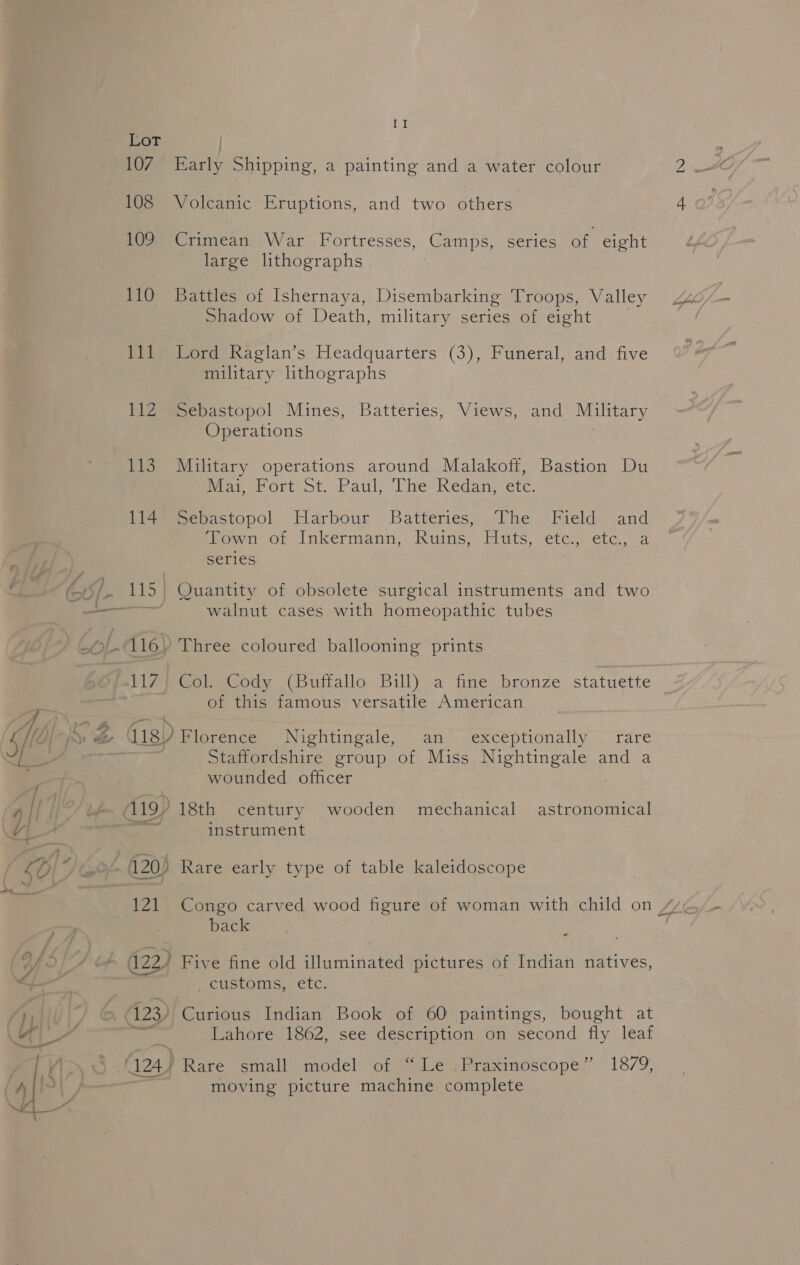 11
Lot
107 Early Shipping, a painting and a water colour 2
108 Volcanic Eruptions, and two others 4
109 Crimean War Fortresses, Camps, series of eight
large lithographs
110 Battles of Ishernaya, Disembarking Troops, Valley
Shadow of Death, military series of eight
111 Lord Raglan's Headquarters (3), Funeral, and five
military lithographs
112 Sebastopol Mines, Batteries, Views, and Military
Operations
113 Military operations around Malakoff, Bastion Du
Mai, Fort St. Paul, The Redan, etc.
114 Sebastopol Harbour Batteries, The Field and
Town of Inkermann, Ruins, Huts, etc., etc., a
series
115 Quantity of obsolete surgical instruments and two
walnut cases with homeopathic tubes
116 Three coloured ballooning prints
117 Col. Cody (Buffallo Bill) a fine bronze statuette
of this famous versatile American
118 Florence Nightingale, an exceptionally rare
Staffordshire group of Miss Nightingale and a
wounded officer
119 18th century wooden mechanical astronomical
instrument
120 Rare early type of table kaleidoscope
121 Congo carved wood figure of woman with child on
back
122 Five fine old illuminated pictures of Indian natives,
customs, etc.
123 Curious Indian Book of 60 paintings, bought at
Lahore 1862, see description on second fly leaf
124 Rare small model of "Le Praxinoscope" 1879,
moving picture machine complete